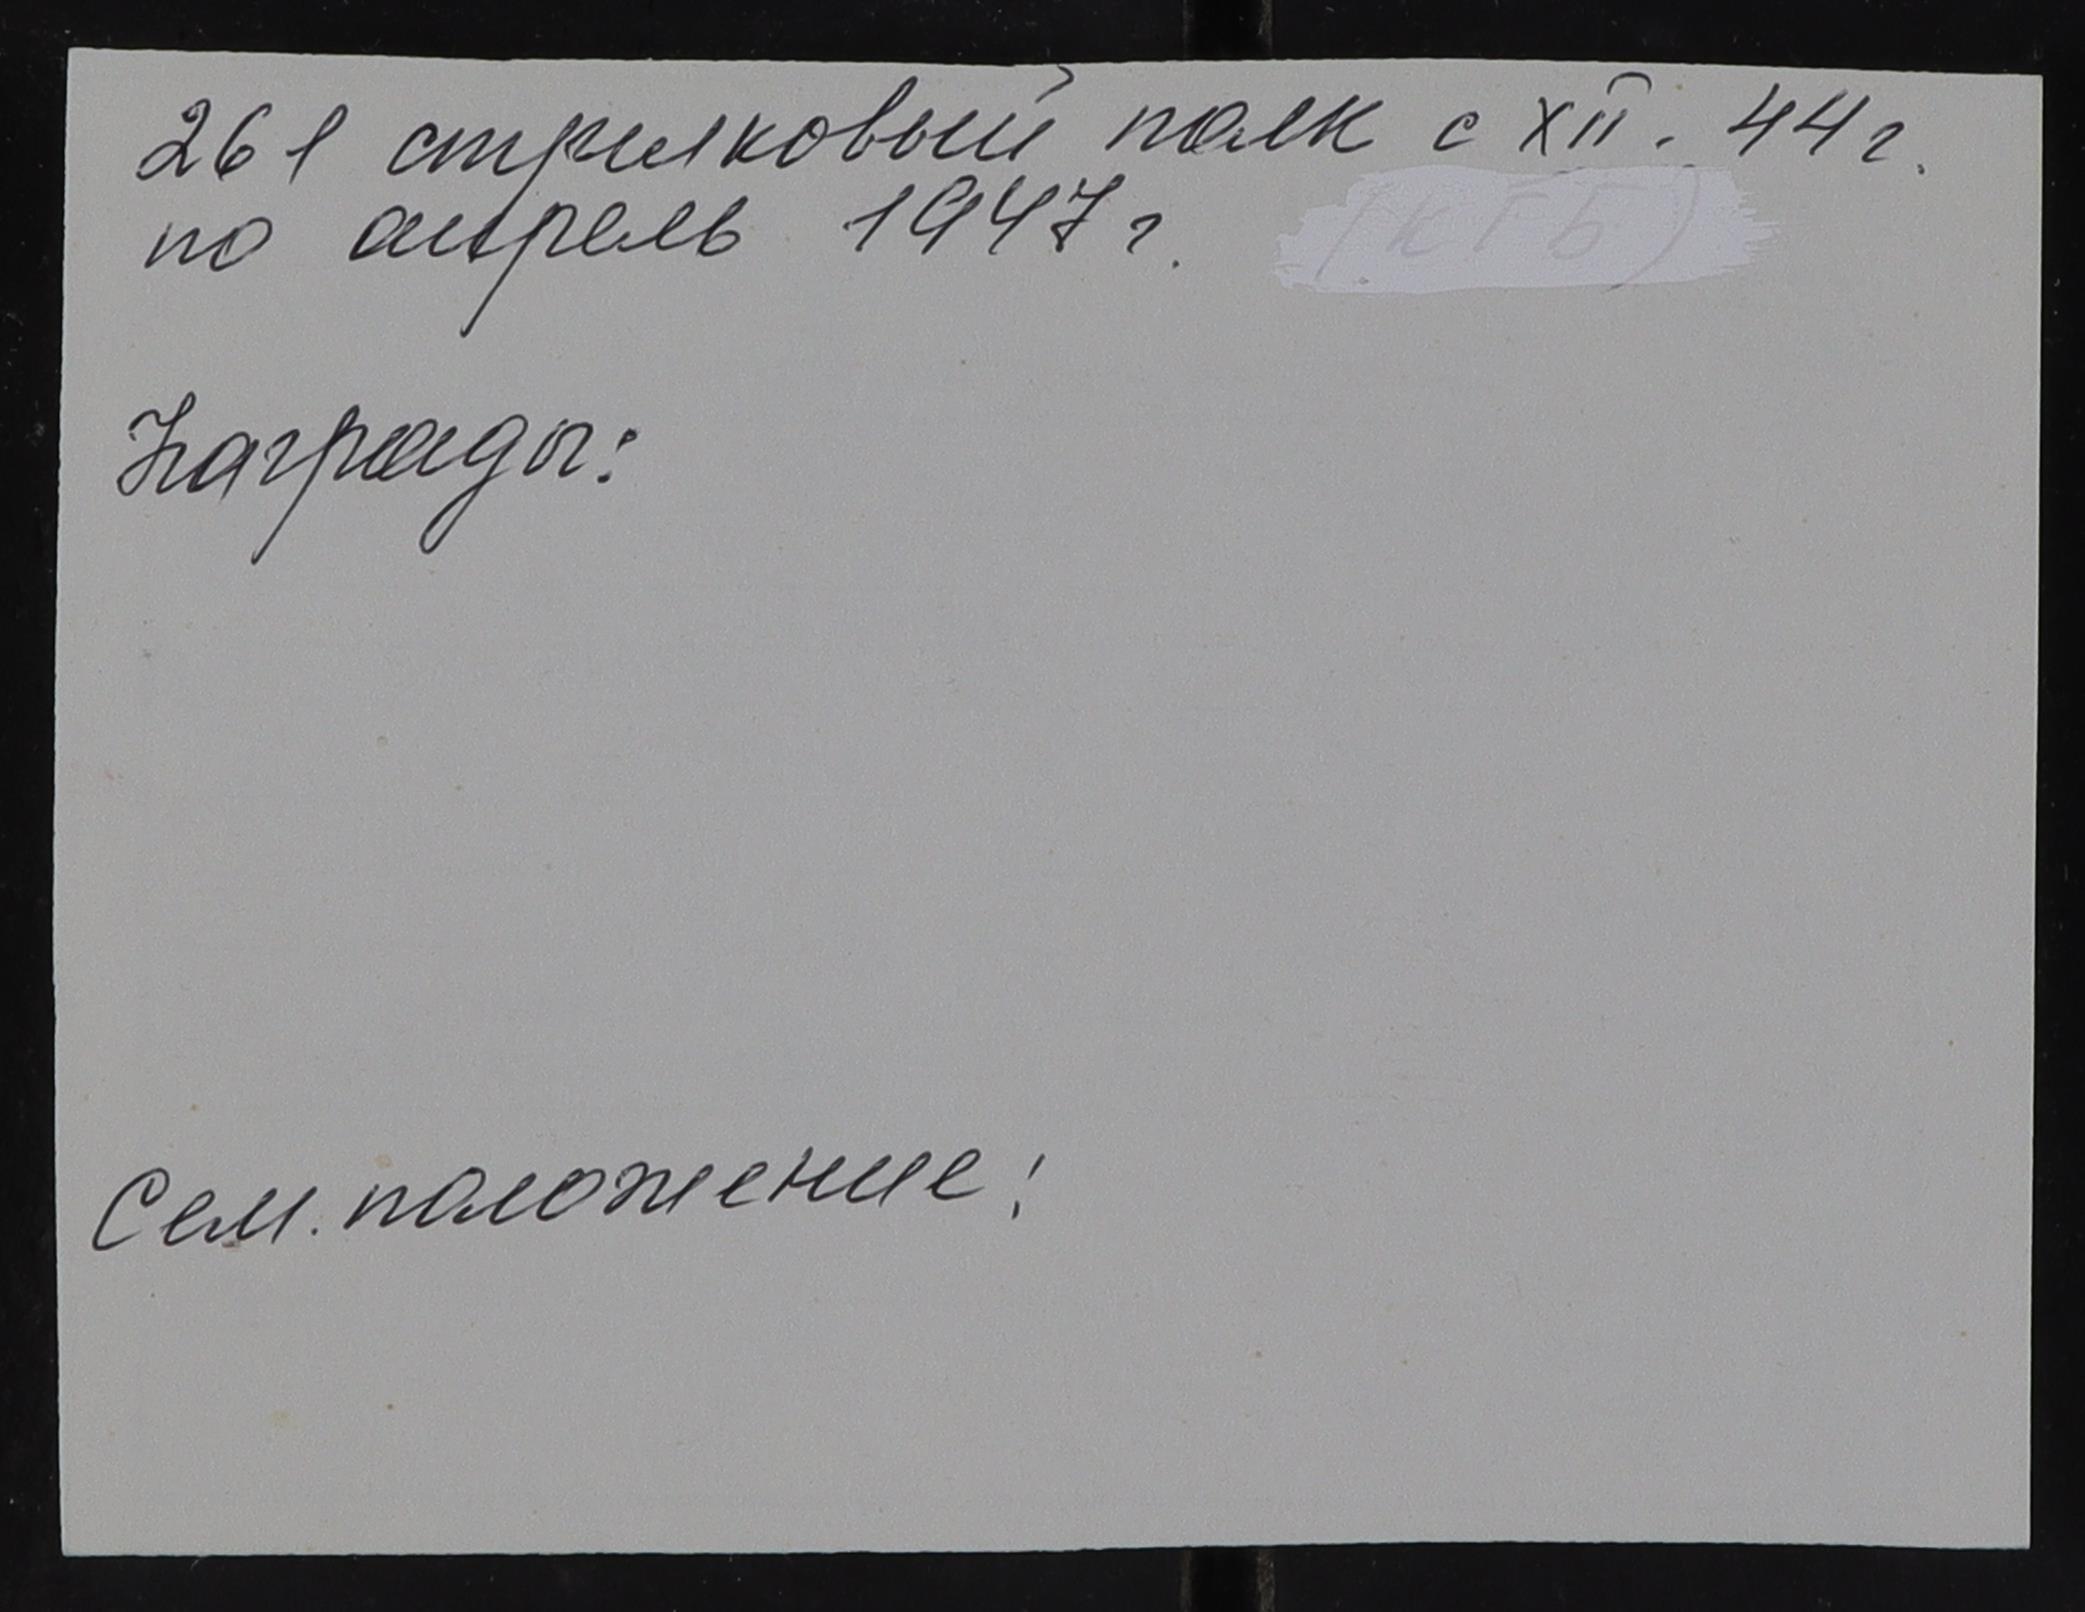 261 стрелковый полк с XII. 44 г.
по апрель 1947 г. (КГБ)
Награды:
Сем. положение: